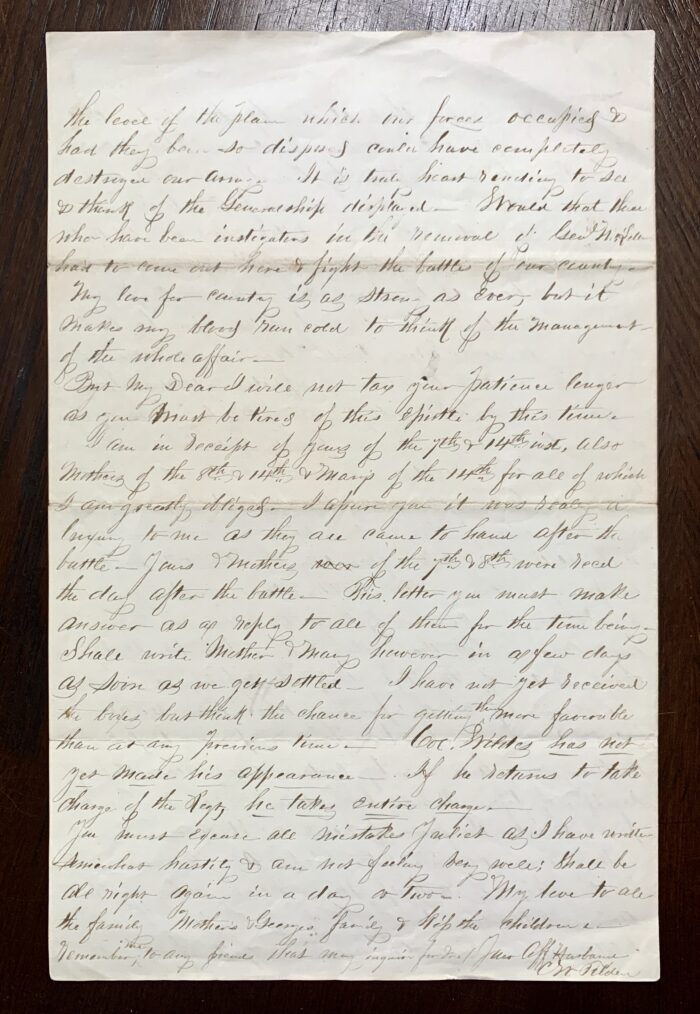 the level of the plain which our forces occupied &
had they been so disposed could have completely
destroyed our army. It is truly heart rending to see
& think of the Generalship displayed — Would that those
who have been instigators in the removal of Genl
had to come out here & fight the battles of our country —
My love for country is as strong as ever, but it
makes my blood run cold to think of the management
of the whole affair —
But My Dear I will not tax your patience longer
as you must be tired of this epistle by this time —
I am in receipt of yours of the 7th & 14th inst, also
Mothers of the 8th & 14th & Marys of the 14th for all of which
I am greatly obliged — I assure you it was really a
luxury to me as they all came to hand after the
battle — Yours & Mothers of the 7th & 8th were recd
the day after the battle — This letter you must make
answer as a reply to all of them for the time being —
Shall write Mother & Mary however in a few days
as soon as we get settled — I have not yet received
the boxes but think the chance for getting them more favorable
than at any previous time — Col. Wildes has not
yet made his appearance — If he returns to take
charge of the Regt, he takes entire charge —
You must excuse all mistakes Juliet as I have written
somewhat hastily & am not feeling very well; shall be
all right again in a day or two — My love to all
the family Mothers & Georges family & kiss the children —
remember me to any friends that may inquire for me / Your Aff Husband
C W Tilden